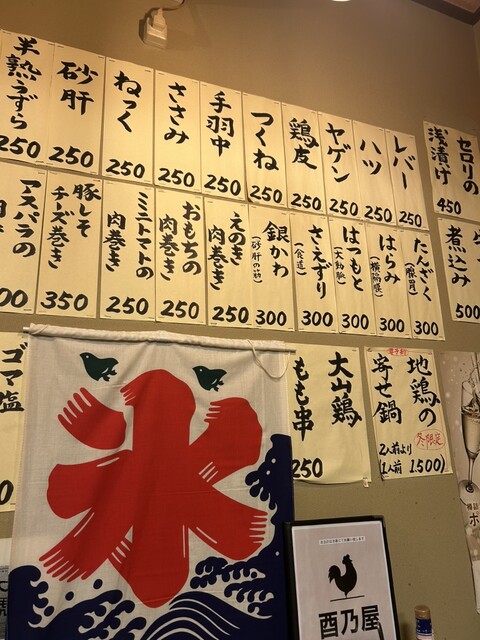 レバー
250
ハツ
250
ヤゲン
250
鶏皮
250
つくね
250
手羽中
250
ささみ
250
ねっく
250
砂肝
250
半熟うずら
250
セロリの
浅漬け
450
たんざく
(腺胃)
300
はらみ
(横隔膜)
300
はつもと
(大動脈)
300
さえずり
(食道)
300
銀かわ
(砂肝の筋)
300
えのき
肉巻き
250
おもちの
肉巻き
250
ミニトマトの
肉巻き
250
豚しそ
チーズ巻き
350
アスパラの
煮込み
500
地鶏の
寄せ鍋
冬限定
2人前より
(1人前 1.500)
大山鶏
もも串
250
ゴマ塩
氷
酉乃屋